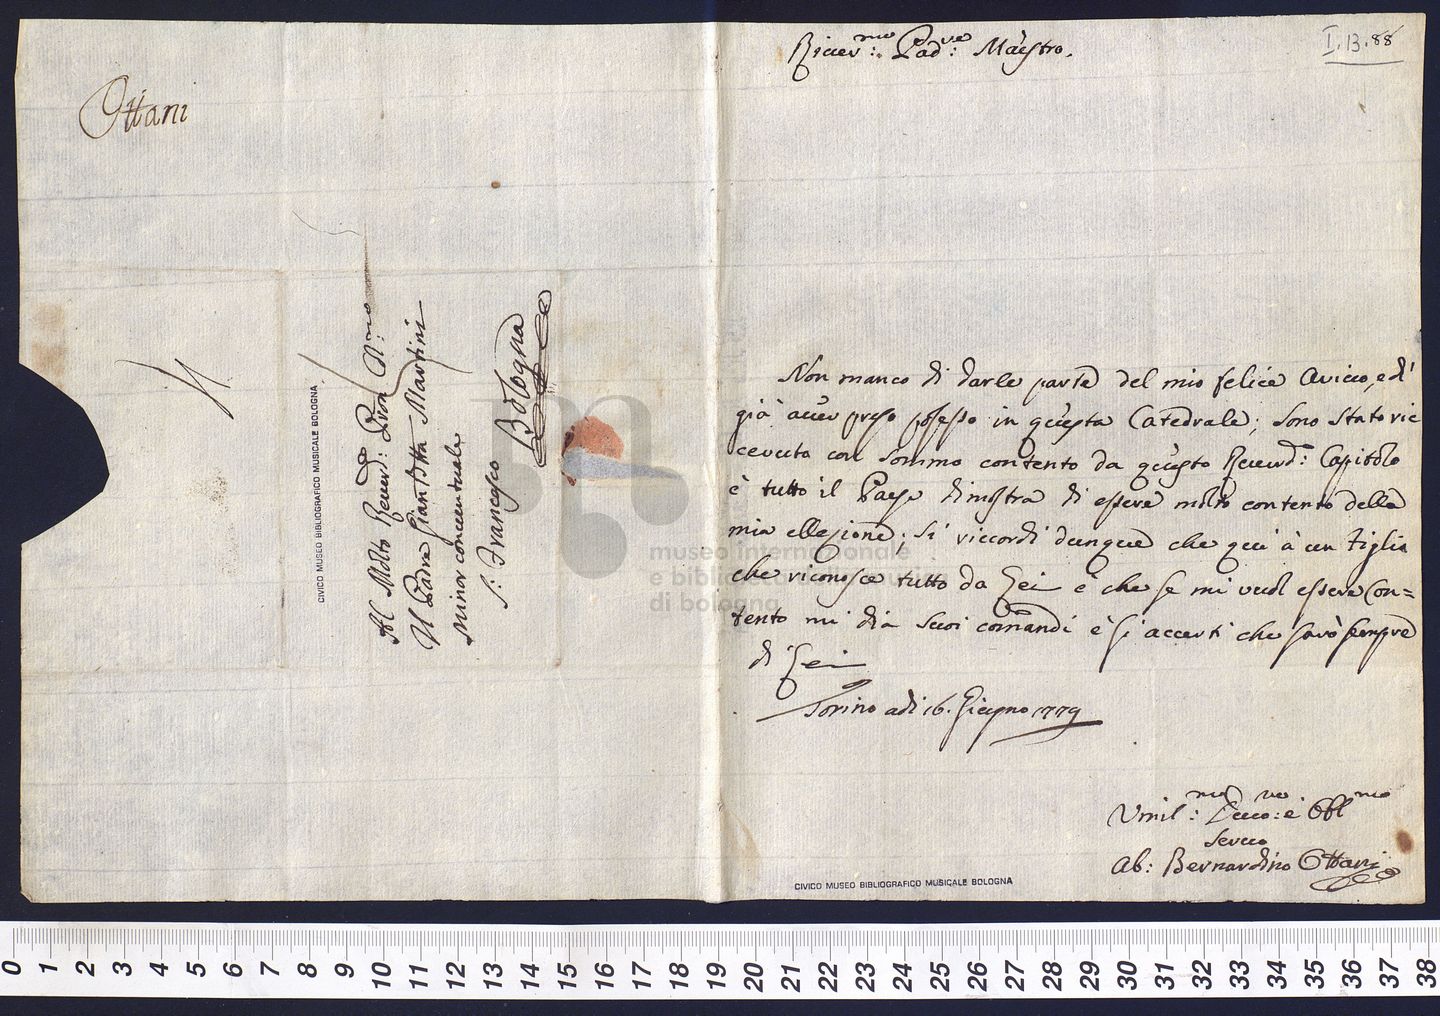 Ottani
Al Molto Reverdo: Pron: Clmo:
Il Padre Gianbtta Martini
Minor conventuale
S: Francesco
Bologna
CIVICO MUSEO BIBLIOGRAFICO MUSICALE BOLOGNA
I.13.88
Rivermo: Padre: Maestro.
Non manco di darle parte del mio felice arivo, e di
già aver preso possesso in questa Catedrale; sono stato ric
cevuto con sommo contento da questo Reverd: Capitolo
è tutto il Paese dimostra di essere molto contento della
mia ellezione; si riccordi dunque che qui à un figlio
che riconosce tutto da Lei è che se mi vuol essere con=
tento mi dia suoi comandi è si accerti che sarò sempre
di Lei
Torino adi 16. Giugno 1779
Umil:mo Devo: è Obblmo
Servo
Ab: Bernardino Ottani
CIVICO MUSEO BIBLIOGRAFICO MUSICALE BOLOGNA
museo internazionale
e biblioteca della musica
di bologna
0 1 2 3 4 5 6 7 8 9 10 11 12 13 14 15 16 17 18 19 20 21 22 23 24 25 26 27 28 29 30 31 32 33 34 35 36 37 38